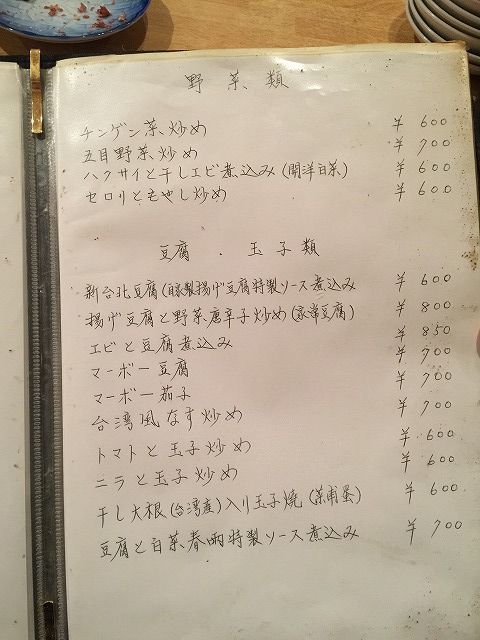 野菜類
チンゲン菜炒め ¥600
五目野菜炒め ¥700
ハクサイと干しエビ煮込み(開洋白菜) ¥600
セロリともやし炒め ¥600
豆腐・玉子類
新台北豆腐(自家製揚げ豆腐特製ソース煮込み ¥600
揚げ豆腐と野菜唐辛子炒め(家常豆腐) ¥800
エビと豆腐煮込み ¥850
マーボー豆腐 ¥700
マーボー茄子 ¥700
台湾風なす炒め ¥700
トマトと玉子炒め ¥600
ニラと玉子炒め ¥600
干し大根(台湾産)入り玉子焼(菜甫蛋) ¥600
豆腐と白菜春雨特製ソース煮込み ¥700